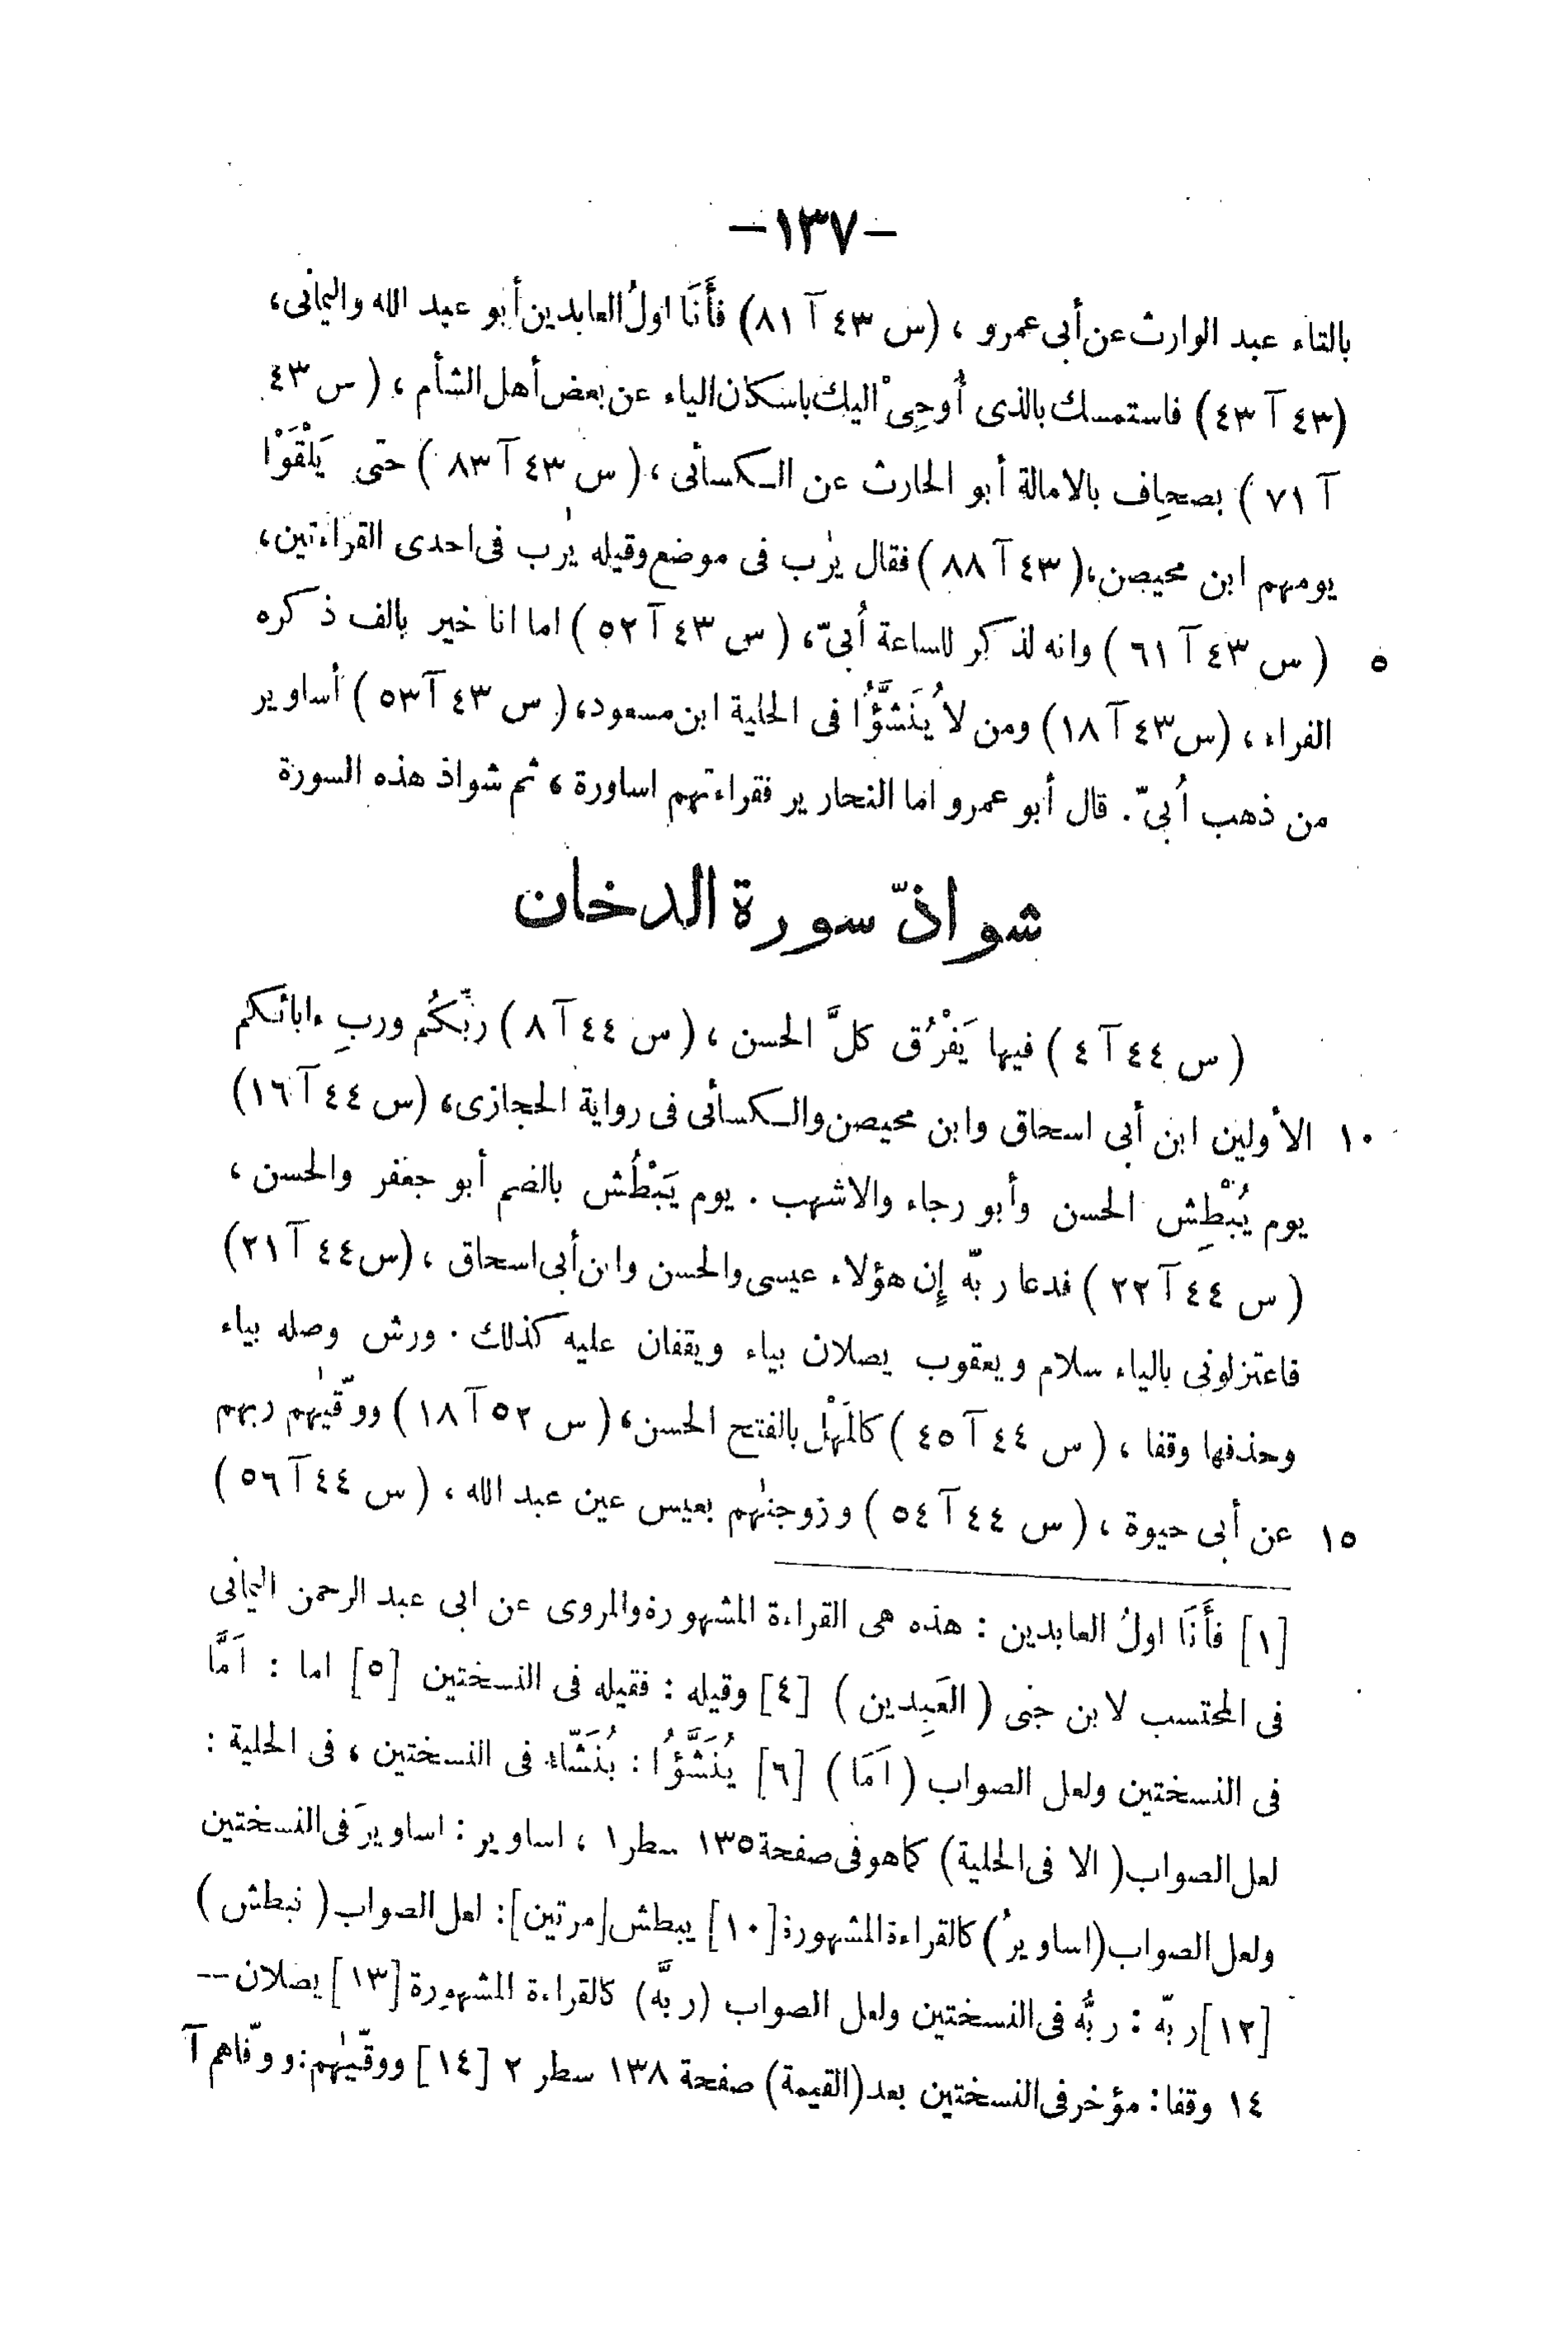 — ١٣٧ —
بالتاء عبد الوارث عن أبى عمرو ، (س ٤٣ آ ٨١) فَأَنَا اولُ العابدين أبو عبد الله واليمانى،
(٤٣ آ ٤٣) فاستمسك بالذى أُوحِىْ اليك باسكان الياء عن بعض أهل الشأم ، ( س ٤٣
آ ٧١ ) بصحِاف بالامالة أبو الحارث عن الكسائى ، ( س ٤٣ آ ٨٣ ) حتى يَلْقَوْا
يومهم ابن محيصن،( ٤٣ آ ٨٨ ) فقال يٰرب فى موضع وقيله يٰرب فى احدى القراءتين،
٥ ( س ٤٣ آ ٦١ ) وانه لذكر للساعة أُبىّ ، ( س ٤٣ آ ٥٢ ) اما انا خير بالف ذكره
الفراء ، (س ٤٣ آ ١٨) ومن لا يُنَشَّؤُا فى الحلية ابن مسعود، ( س ٤٣ آ ٥٣ ) أساوير
من ذهب أُبىّ . قال أبو عمرو اما النحارير فقراءتهم اساورة ، ثم شواذ هذه السورة
شواذّ سورة الدخان
( س ٤٤ آ ٤ ) فيها يَفْرُق كلَّ الحسن ، ( س ٤٤ آ ٨ ) ربِّكُم وربِ ءابائكم
١٠ الأولين ابن أبى اسحاق وابن محيصن والكسائى فى رواية الحجازى، (س ٤٤ آ ١٦)
يوم يُبْطِش الحسن وأبو رجاء والاشهب . يوم يَبْطُش بالضم أبو جعفر والحسن ،
( س ٤٤ آ ٢٢ ) فدعا ربّه إِن هؤلاء عيسى والحسن وابن أبى اسحاق ، (س ٤٤ آ ٢١)
فاعتزلونى بالياء سلام ويعقوب يصلان بياء ويقفان عليه كذلك . ورش وصله بياء
وحذفها وقفا ، ( س ٤٤ آ ٤٥ ) كالمَهْل بالفتح الحسن، ( س ٥٢ آ ١٨ ) ووقّيٰهم ربهم
١٥ عن أبى حيوة ، ( س ٤٤ آ ٥٤ ) وزوجنٰهم بعيس عين عبد الله ، ( س ٤٤ آ ٥٦ )
[١] فأَنَا اولُ العابدين : هذه هى القراءة المشهورة والمروى عن ابى عبد الرحمن اليمانى
فى المحتسب لابن جنى ( العَبِدين ) [٤] وقيله : فقيله فى النسختين [٥] اما : اَمَّا
فى النسختين ولعل الصواب ( اَمَا ) [٦] يُنَشَّؤُا : بُنَشّاء فى النسختين ، فى الحلية :
لعل الصواب ( الا فى الحلية) كما هو فى صفحة ١٣٥ سطر ١ ، اساوير : اساويرَ فى النسختين
ولعل الصواب (اساويرُ) كالقراءة المشهورة [١٠] يبطش [مرتين]: لعل الصواب ( نبطش )
[١٢] ربّه : ربُّه فى النسختين ولعل الصواب (ربَّه) كالقراءة المشهورة [١٣] يصلان--
١٤ وقفا: مؤخر فى النسختين بعد (القيمة) صفحة ١٣٨ سطر ٢ [١٤] ووقّيٰهم: ووقّاهم آ